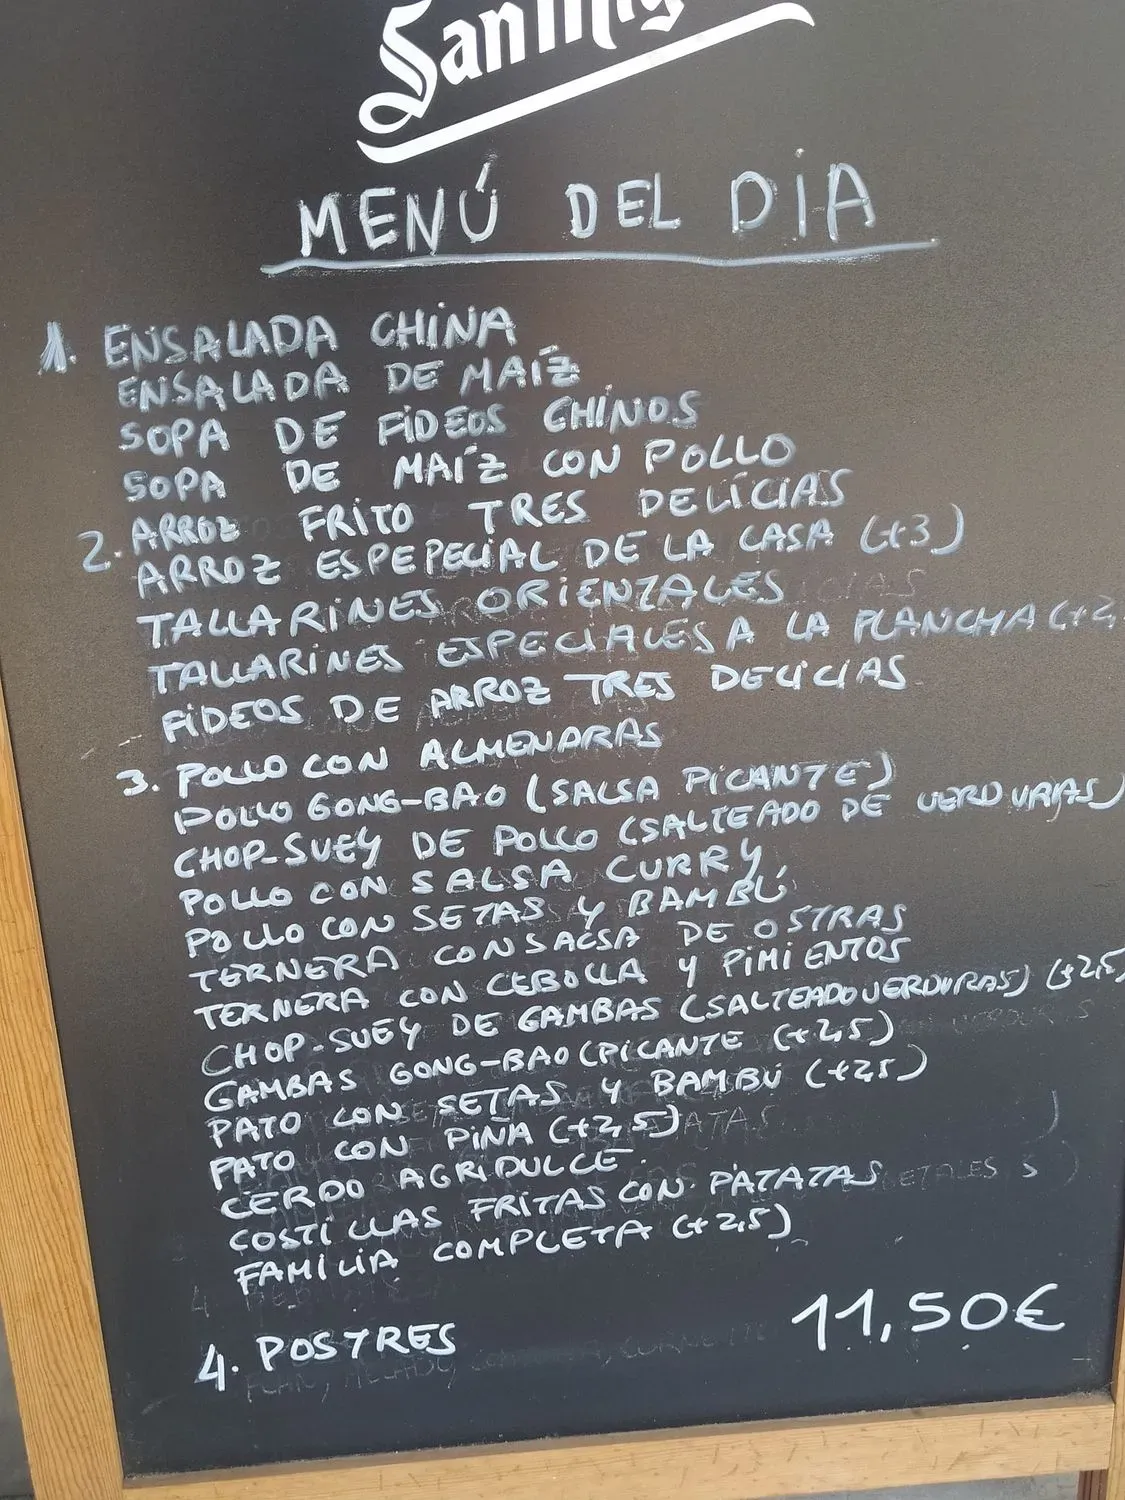 San Mig
MENÚ DEL DIA
1. ENSALADA CHINA
ENSALADA DE MAÍZ
SOPA DE FIDEOS CHINOS
SOPA DE MAÍZ CON POLLO
2. ARROZ FRITO TRES DELICIAS
ARROZ ESPEPECIAL DE LA CASA (+3)
TALLARINES ORIENTALES
TALLARINES ESPECIALES A LA PLANCHA (+2,
FIDEOS DE ARROZ TRES DELICIAS
3. POLLO CON ALMENDRAS
POLLO GONG-BAO (SALSA PICANTE)
CHOP-SUEY DE POLLO (SALTEADO DE VERDURAS)
POLLO CON SALSA CURRY
POLLO CON SETAS Y BAMBÚ
TERNERA CON SALSA DE OSTRAS
TERNERA CON CEBOLLA Y PIMIENTOS
CHOP-SUEY DE GAMBAS (SALTEADO VERDURAS) (+2,5)
GAMBAS GONG-BAO (PICANTE (+2,5)
PATO CON SETAS Y BAMBÚ (+2,5)
PATO CON PIÑA (+2,5)
CERDO AGRIDULCE
COSTILLAS FRITAS CON PATATAS
FAMILIA COMPLETA (+2,5)
4. POSTRES
11,50€